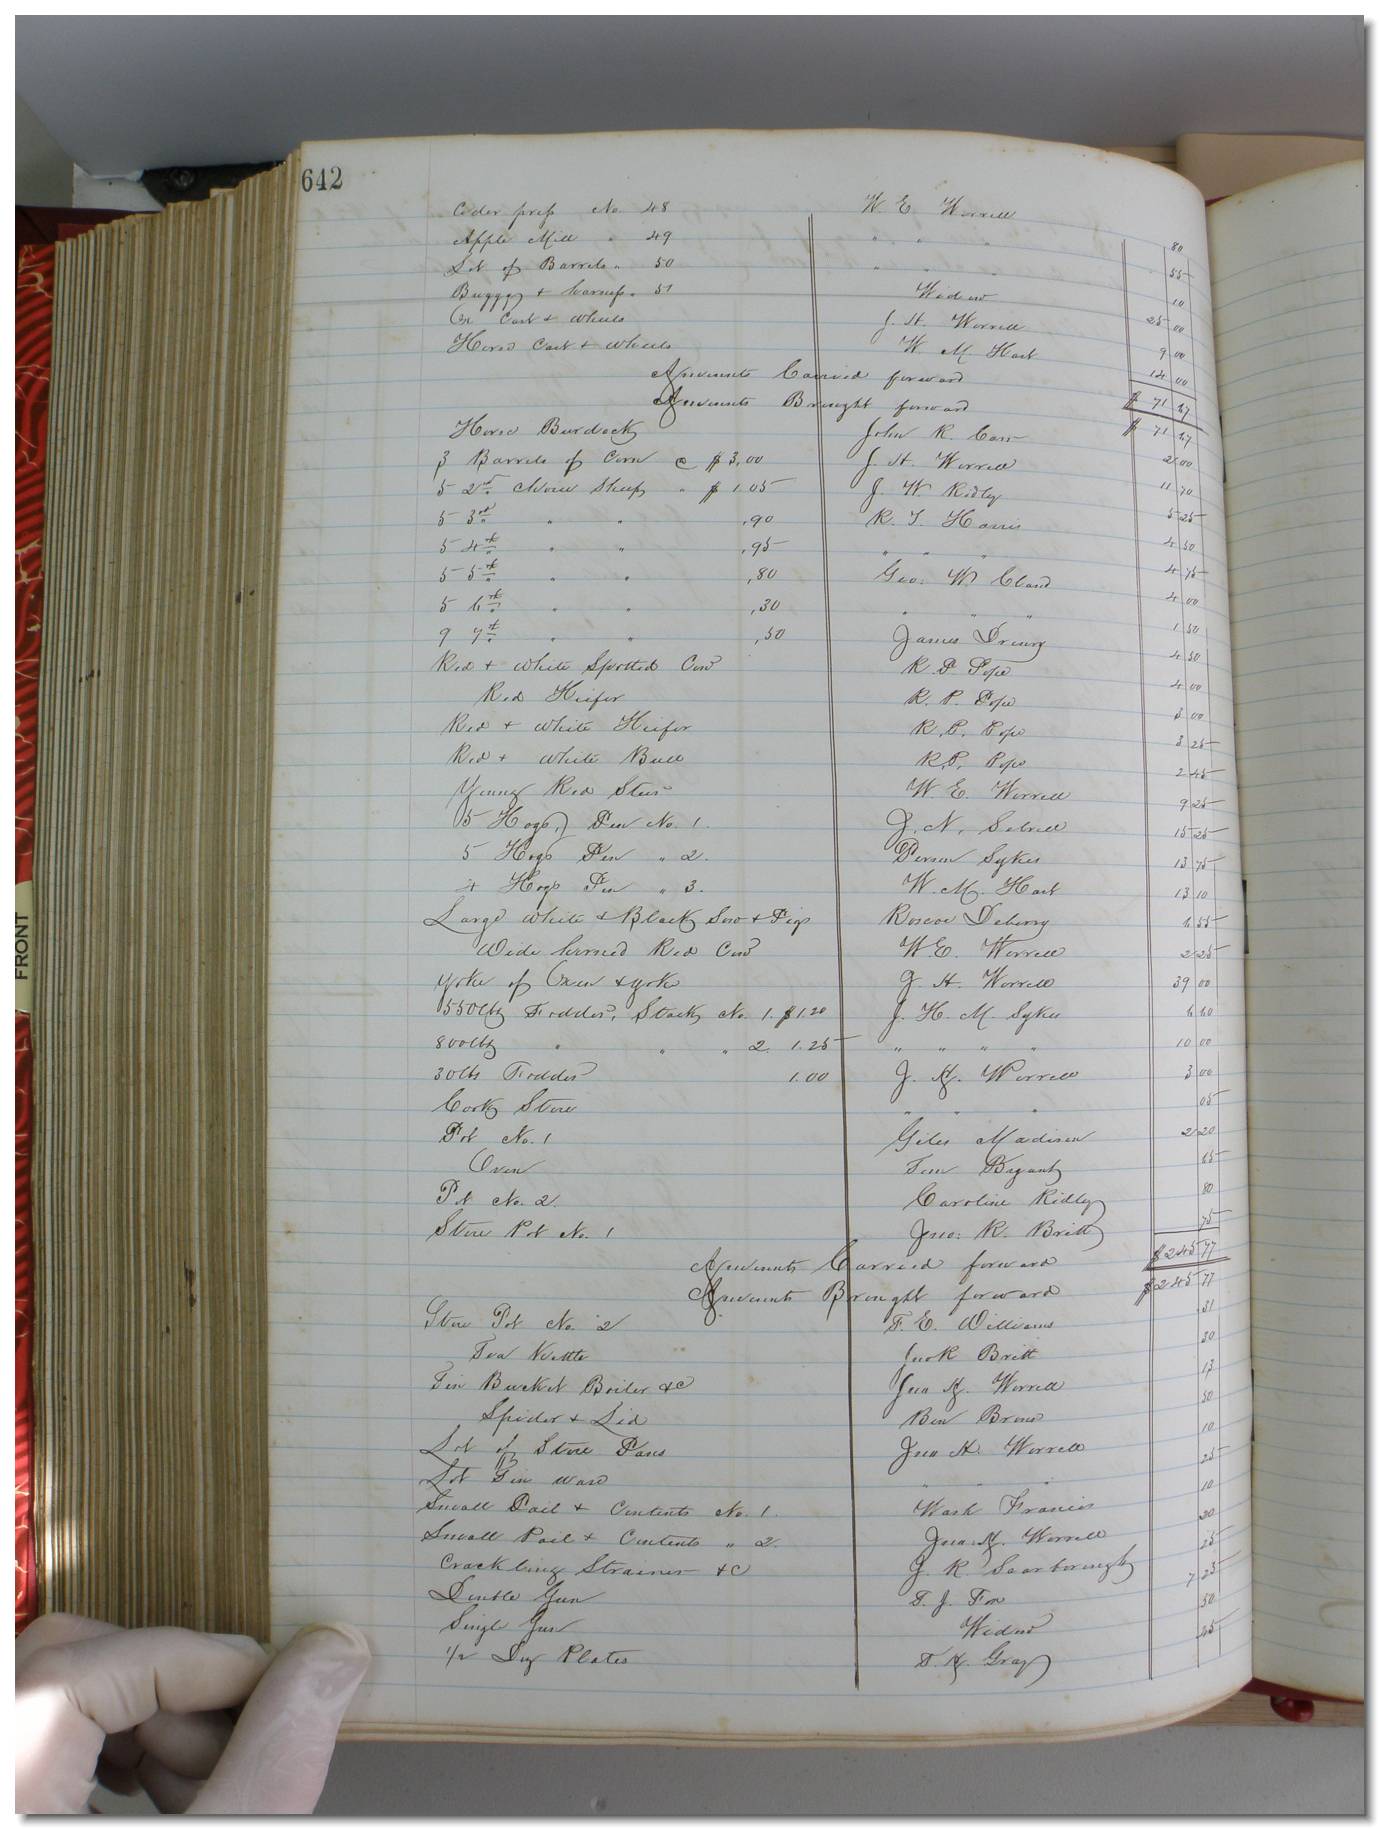 642
Cider press No. 48 W. E. Worrell 80
Apple Mill " 49 " " " 55
Lot of Barrels " 50 " " " 10
Buggy & harness " 51 Widow 25 00
Ox Cart & wheels J. H. Worrell 9 00
Horse Cart & wheels W. M. Hart 14 00
Amounts Carried forward $ 71 27
Amounts Brought forward $ 71 27
Horse Burdock John R. 2 00
3 Barrels of Corn @ $3,00 J. H. Worrell 11 70
5 2nd Choice Sheep " $1.05 J. W. Ridley 5 25
5 3rd " " ,90 R. T. Harris 4 50
5 4th " " ,95 " " " 4 75
5 5th " " ,80 Geo. W. Claud 4 00
5 6th " " ,30 " " " 1 50
9 7th " " ,50 James Drewry 4 50
Red & White Spotted Cow R. P. Pope 4 00
Red Heifer R. P. Pope 3 00
Red & White Heifer R. P. Pope 3 25
Red & White Bull R. P. Pope 2 45
Young Red Steer W. E. Worrell 9 25
5 Hogs, Pen No. 1. J. N. Sebrell 15 25
5 Hogs Pen " 2. Person Sykes 13 75
4 Hogs Pen " 3. W. M. Hart 13 10
Large White & Black Sow & Pigs Roscoe Deberry 6 55
Wide horned Red Cow W. E. Worrell 2 25
Yoke of Oxen & yoke J. H. Worrell 39 00
550lbs Fodder, Stack No. 1. $1.20 J. H. M. Sykes 6 60
800lbs " " " 2. 1.25 " " " " 10 00
30lbs Fodder 1.00 J. H. Worrell 3 00
Cook Stove " " " 05
Pot No. 1 Giles Madison 2 20
Oven Tom Bryant 65
Pot No. 2. Caroline Ridley 80
Stove Pot No. 1 Jno. R. Britt 75
Amounts Carried forward $245 77
Amounts Brought forward $245 77
Stove Pot No. 2 T. E. Williams 31
Tea Kettle Jno R Britt 30
Tin Bucket Boiler &c Jno H. Worrell 17
Spider & Lid Ben Brown 50
Lot of Stove Pans Jno H. Worrell 10
Lot Tin ware " " " 25
Small Pail & Contents No. 1. Wash Francis 10
Small Pail & Contents " 2. Jno. H. Worrell 20
Crackling Strainer &C J. R. Scarborough 25
Double Gun T. J. Fox 7 25
Single Gun Widow 50
1/2 Doz Plates T. H. Gray 25
FRONT